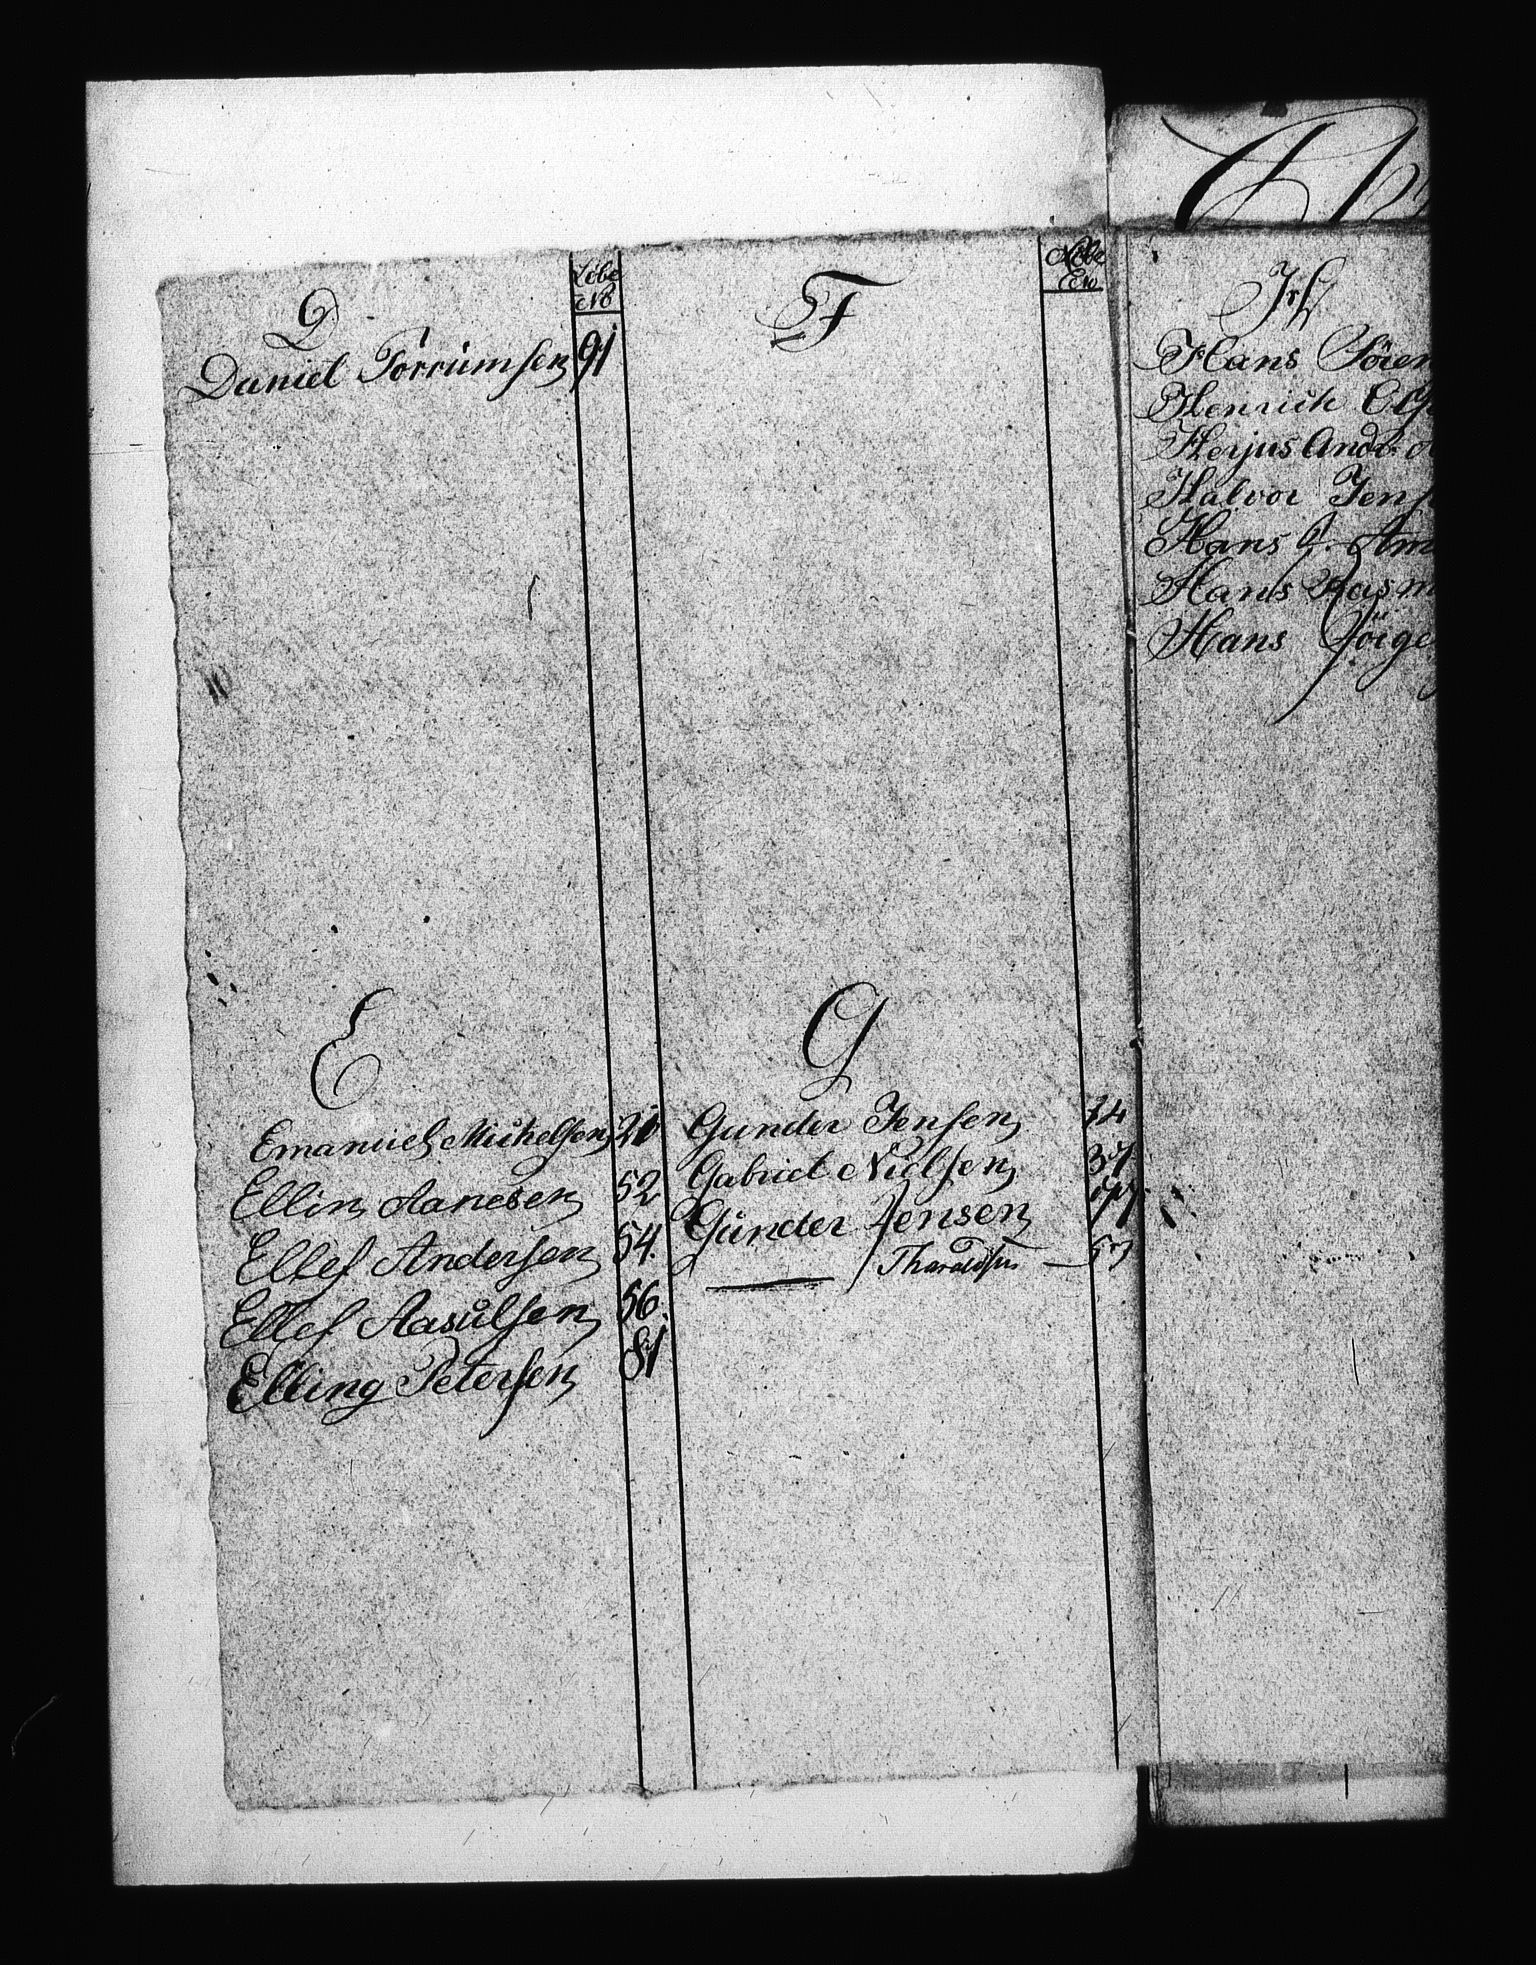 D
Løbe
No
Daniel Torrümsen 91
E
Emanuel Michelsen 21
Ellin Aanesen 52
Ellef Andersen 54.
Ellef Aasülsen 56.
Elling Petersen 81
F
Løbe
No
G
Gunder Jensen 14
Gabriel Nielsen 37
Günder Jensen
Tharaldsen 57
H
Hans
Henrich
Herjus And.
Halvor Jens
Hans
Hans Rasm
Hans Jörge